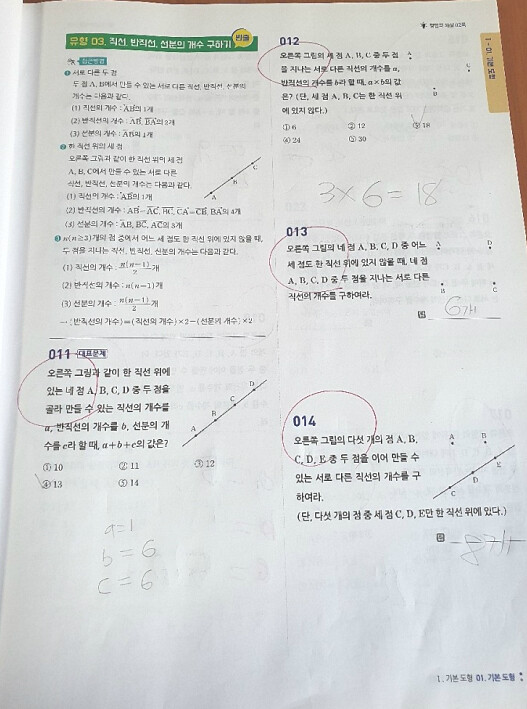 유형 03. 직선, 반직선, 선분의 개수 구하기 빈출
❶ 서로 다른 두 점
두 점 A, B에서 만들 수 있는 서로 다른 직선, 반직선, 선분의
개수는 다음과 같다.
(1) 직선의 개수 : AB의 1개
(2) 반직선의 개수 : AB, BA의 2개
(3) 선분의 개수 : AB의 1개
❷ 한 직선 위의 세 점
오른쪽 그림과 같이 한 직선 위에 세 점
A, B, C에서 만들 수 있는 서로 다른
직선, 반직선, 선분의 개수는 다음과 같다.
(1) 직선의 개수 : AB의 1개
(2) 반직선의 개수 : AB=AC, BC, CA=CB, BA의 4개
(3) 선분의 개수 : AB, BC, AC의 3개
A B C
❸ n(n≥3)개의 점 중에서 어느 세 점도 한 직선 위에 있지 않을 때,
두 점을 지나는 직선, 반직선, 선분의 개수는 다음과 같다.
(1) 직선의 개수 : n(n-1)/2 개
(2) 반직선의 개수 : n(n-1)개
(3) 선분의 개수 : n(n-1)/2 개
→ (반직선의 개수)=(직선의 개수)×2=(선분의 개수)×2
011 대표문제
오른쪽 그림과 같이 한 직선 위에
있는 네 점 A, B, C, D 중 두 점을
골라 만들 수 있는 직선의 개수를
a, 반직선의 개수를 b, 선분의 개
수를 c라 할 때, a+b+c의 값은?
A B C D
① 10 ② 11 ③ 12
④ 13 ⑤ 14
a=1
b=6
c=6
012
오른쪽 그림의 세 점 A, B, C 중 두 점
을 지나는 서로 다른 직선의 개수를 a,
반직선의 개수를 b라 할 때, a×b의 값
은? (단, 세 점 A, B, C는 한 직선 위
에 있지 않다.)
A
C
B
① 6 ② 12 ③ 18
④ 24 ⑤ 30
3×6=18
013
오른쪽 그림의 네 점 A, B, C, D 중 어느
세 점도 한 직선 위에 있지 않을 때, 네 점
A, B, C, D 중 두 점을 지나는 서로 다른
직선의 개수를 구하여라.
A D
B C
답 6개
014
오른쪽 그림의 다섯 개의 점 A, B,
C, D, E 중 두 점을 이어 만들 수
있는 서로 다른 직선의 개수를 구
하여라.
(단, 다섯 개의 점 중 세 점 C, D, E만 한 직선 위에 있다.)
A B
C D E
답 8개
I-01 기본 도형
I. 기본 도형 01. 기본 도형